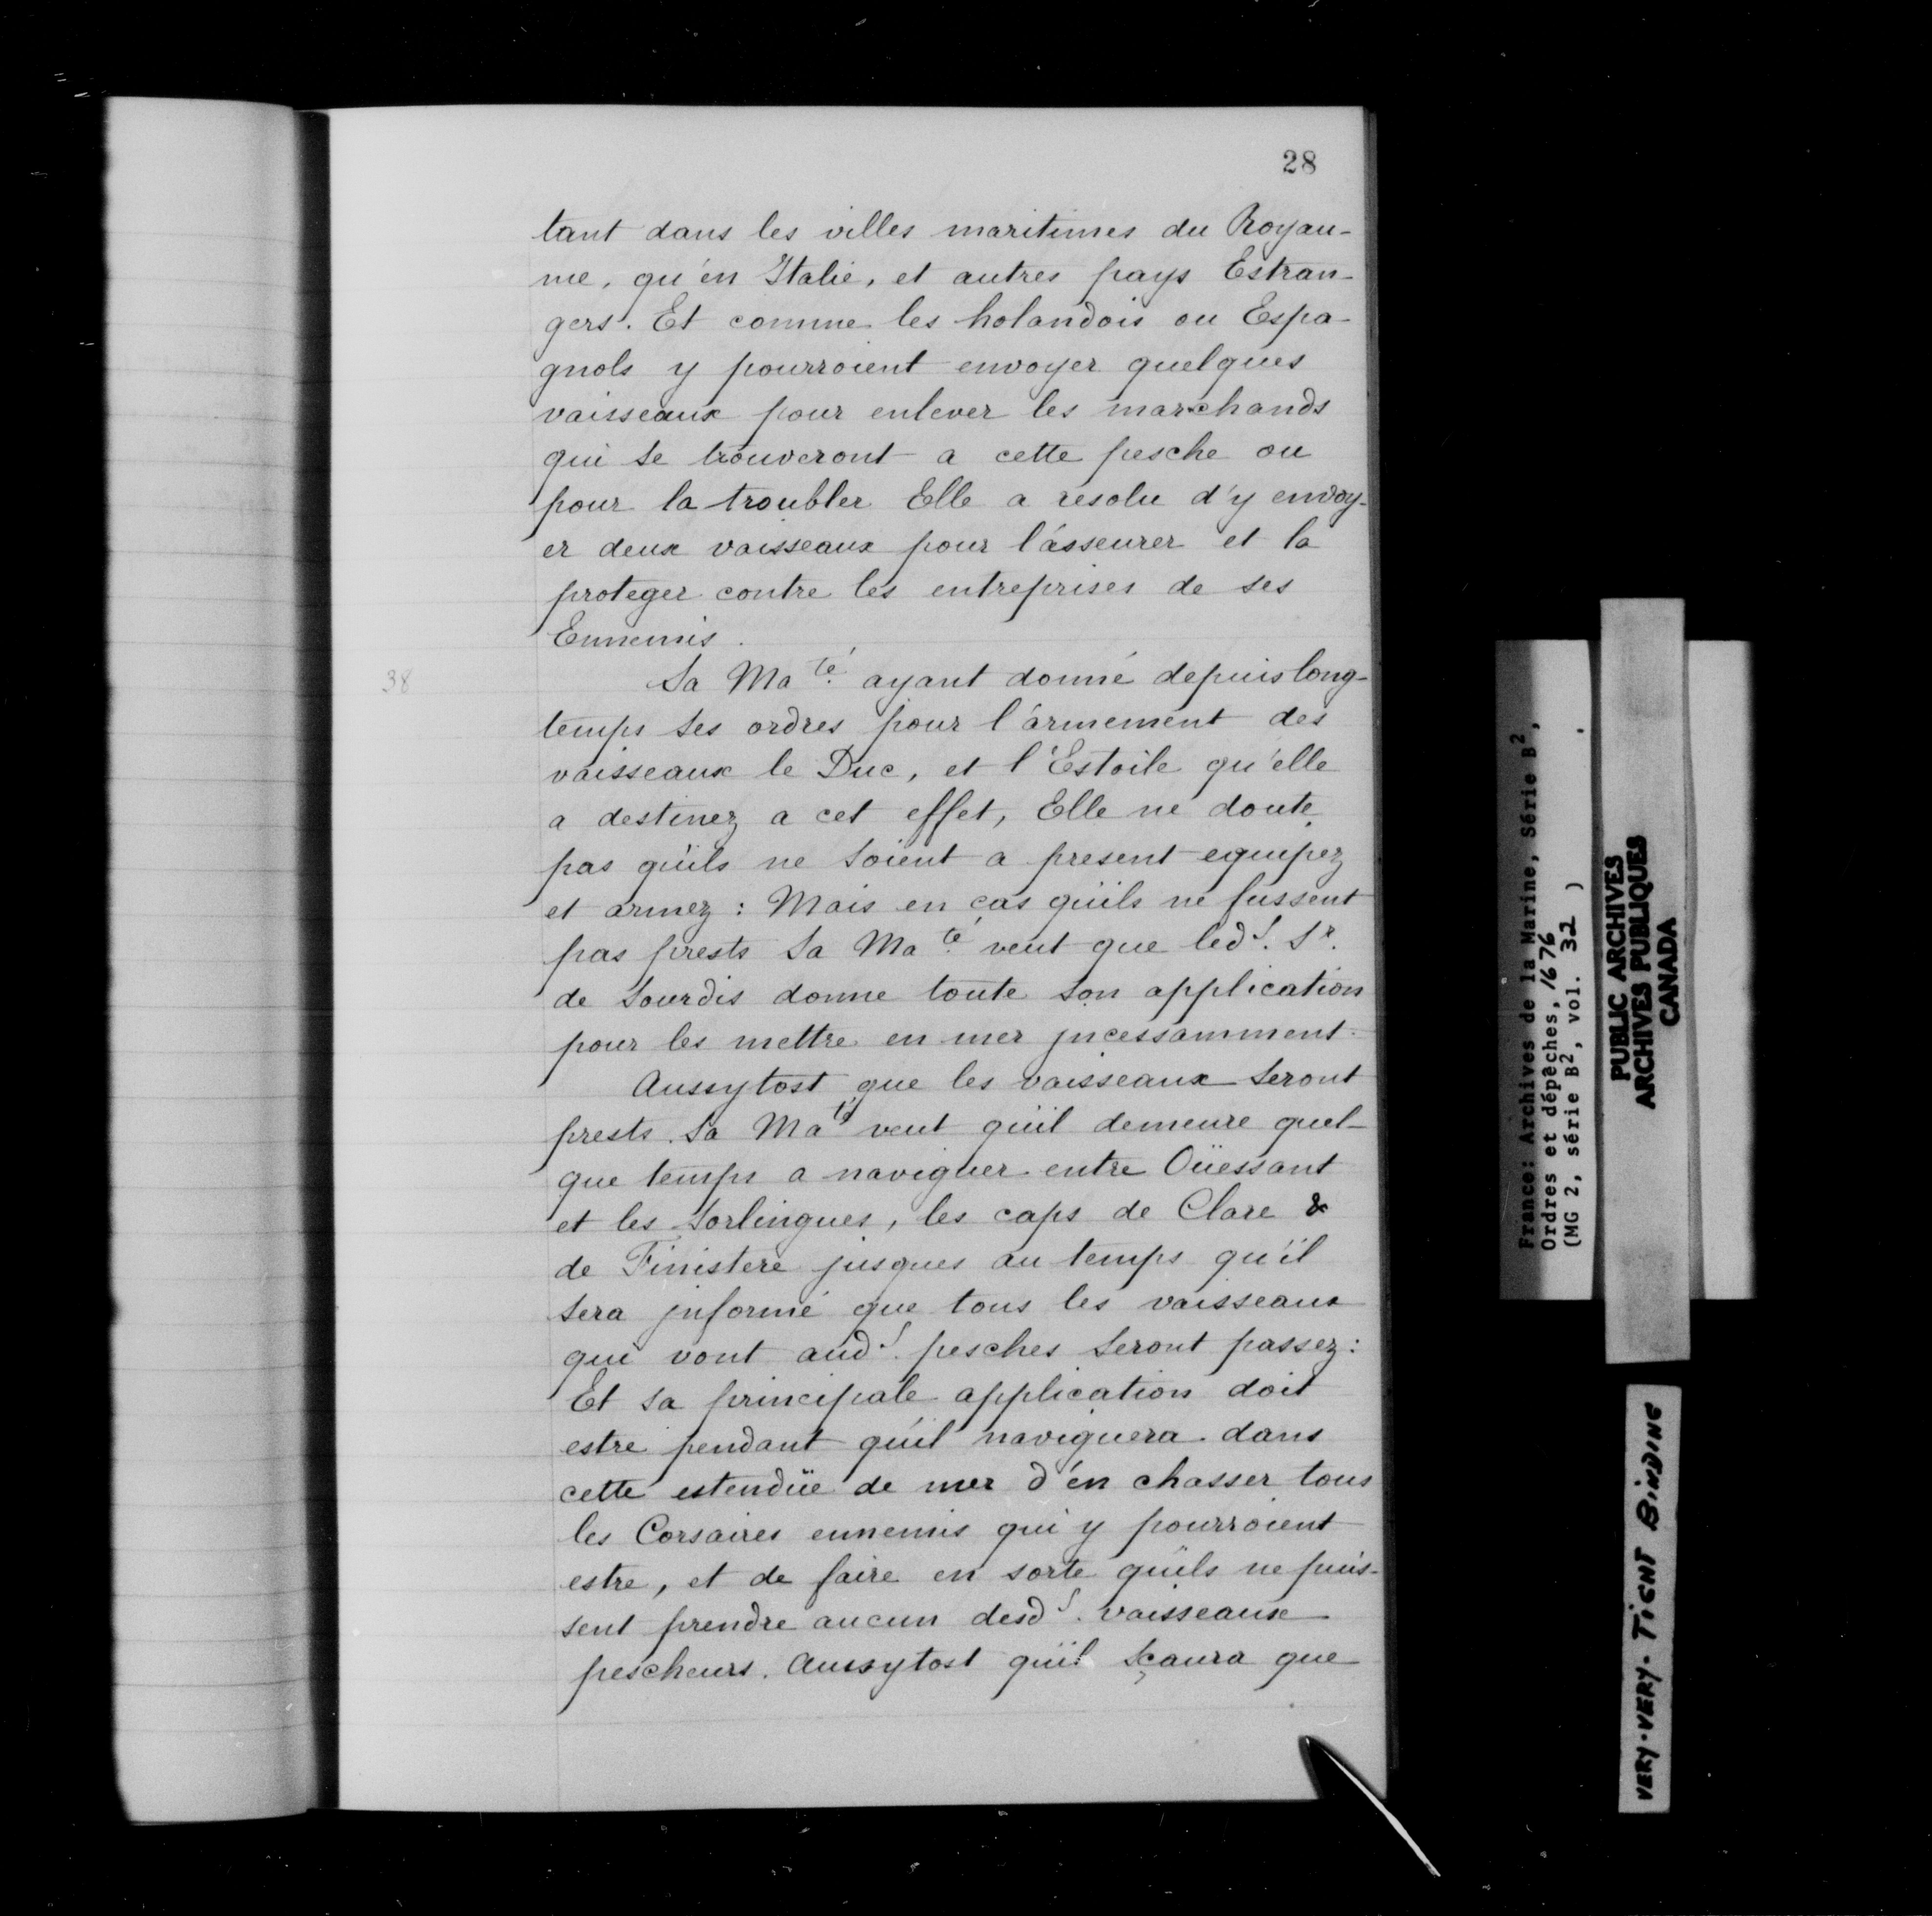 28
tant dans les villes maritimes du Royau-
me, qu'en Italie, et autres pays Estran-
gers. Et comme les holandois ou Espa-
gnols y pourroient envoyer quelques
vaisseaux pour enlever les marchands
qui se trouveront a cette pesche ou
pour la troubler Elle a resolu d'y envoy-
er deux vaisseaux pour l'asseurer et la
proteger contre les entreprises de ses
Ennemis.
38
Sa Ma.té ayant donné depuis long-
temps ses ordres pour l'armement des
vaisseaux le Duc, et l'Estoile qu'elle
a destinez a cet effet, Elle ne doute
pas qu'ils ne soient a present equipez
et armez : Mais en cas qu'ils ne fussent
pas prests Sa Ma.té veut que led.s Sr.
de Sourdis donne toute son application
pour les mettre en mer jncessamment.
Aussytost que les vaisseaux seront
prests Sa Maté veut qu'il demeure quel-
que temps a naviguer entre Oüessant
et les Sorlingues, les caps de Clare &
de Finistere jusques au temps qu'il
sera jnformé que tous les vaisseaux
qui vont aud.s pesches seront passez :
Et sa principale application doit
estre pendant qu'il naviguera dans
cette estendüe de mer d'en chasser tous
les Corsaires ennemis qui y pourroient
estre, et de faire en sorte qu'ils ne puis-
sent prendre aucun desd.s vaisseaux
pescheurs. Aussytost qu'il sçaura que
France: Archives de la Marine, Série B2,
Ordres et dépêches, 1676
(MG 2, série B2, vol. 32 )
PUBLIC ARCHIVES
ARCHIVES PUBLIQUES
CANADA
VERY-VERY-TIGHT BINDING